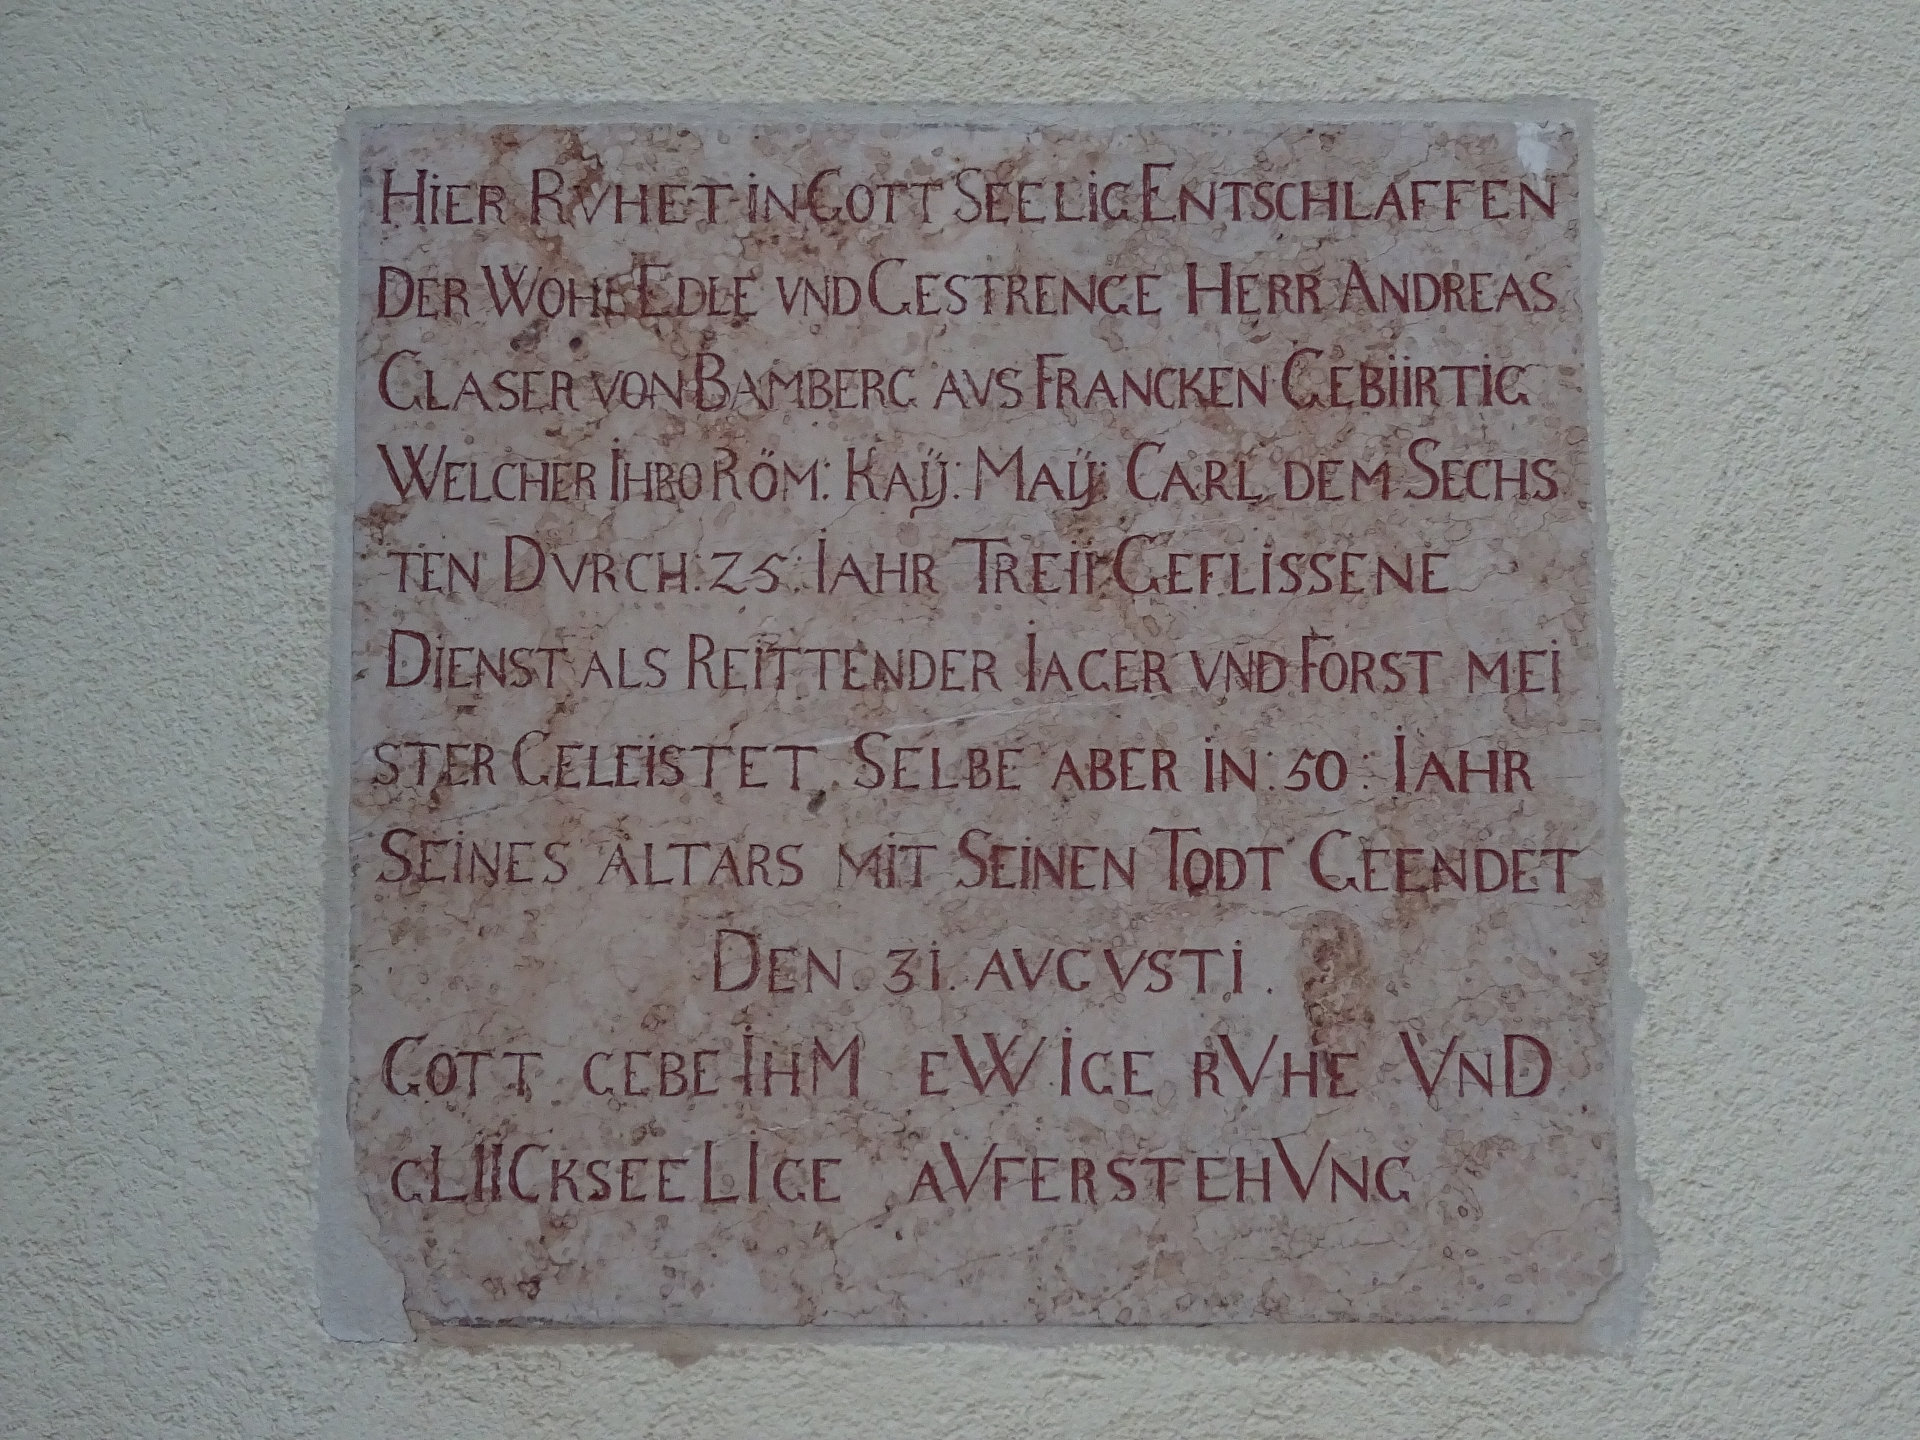 HiER RVHET iN GOTT SEELiG ENTSCHLAFFEN
DER WOHL EDLE VND GESTRENGE HERR ANDREAS
GLASER VON BAMBERG AVS FRANCKEN GEBiiRTiG
WELCHER IHRO RÖM: KAŸ: MAŸ: CARL DEM SECHS
TEN DVRCH: 25: IAHR TREii GEFLiSSENE
DiENST ALS REiTTENDER IAGER VND FORST MEi
STER GELEiSTET SELBE ABER iN: 50: IAHR
SEiNES ALTARS MiT SEiNEN TODT GEENDET
DEN. 31. AVGVSTi.
GOTT GEBE IHM EWIGE RVHE VND
GLIICKSEELIGE AVFERSTEHVNG